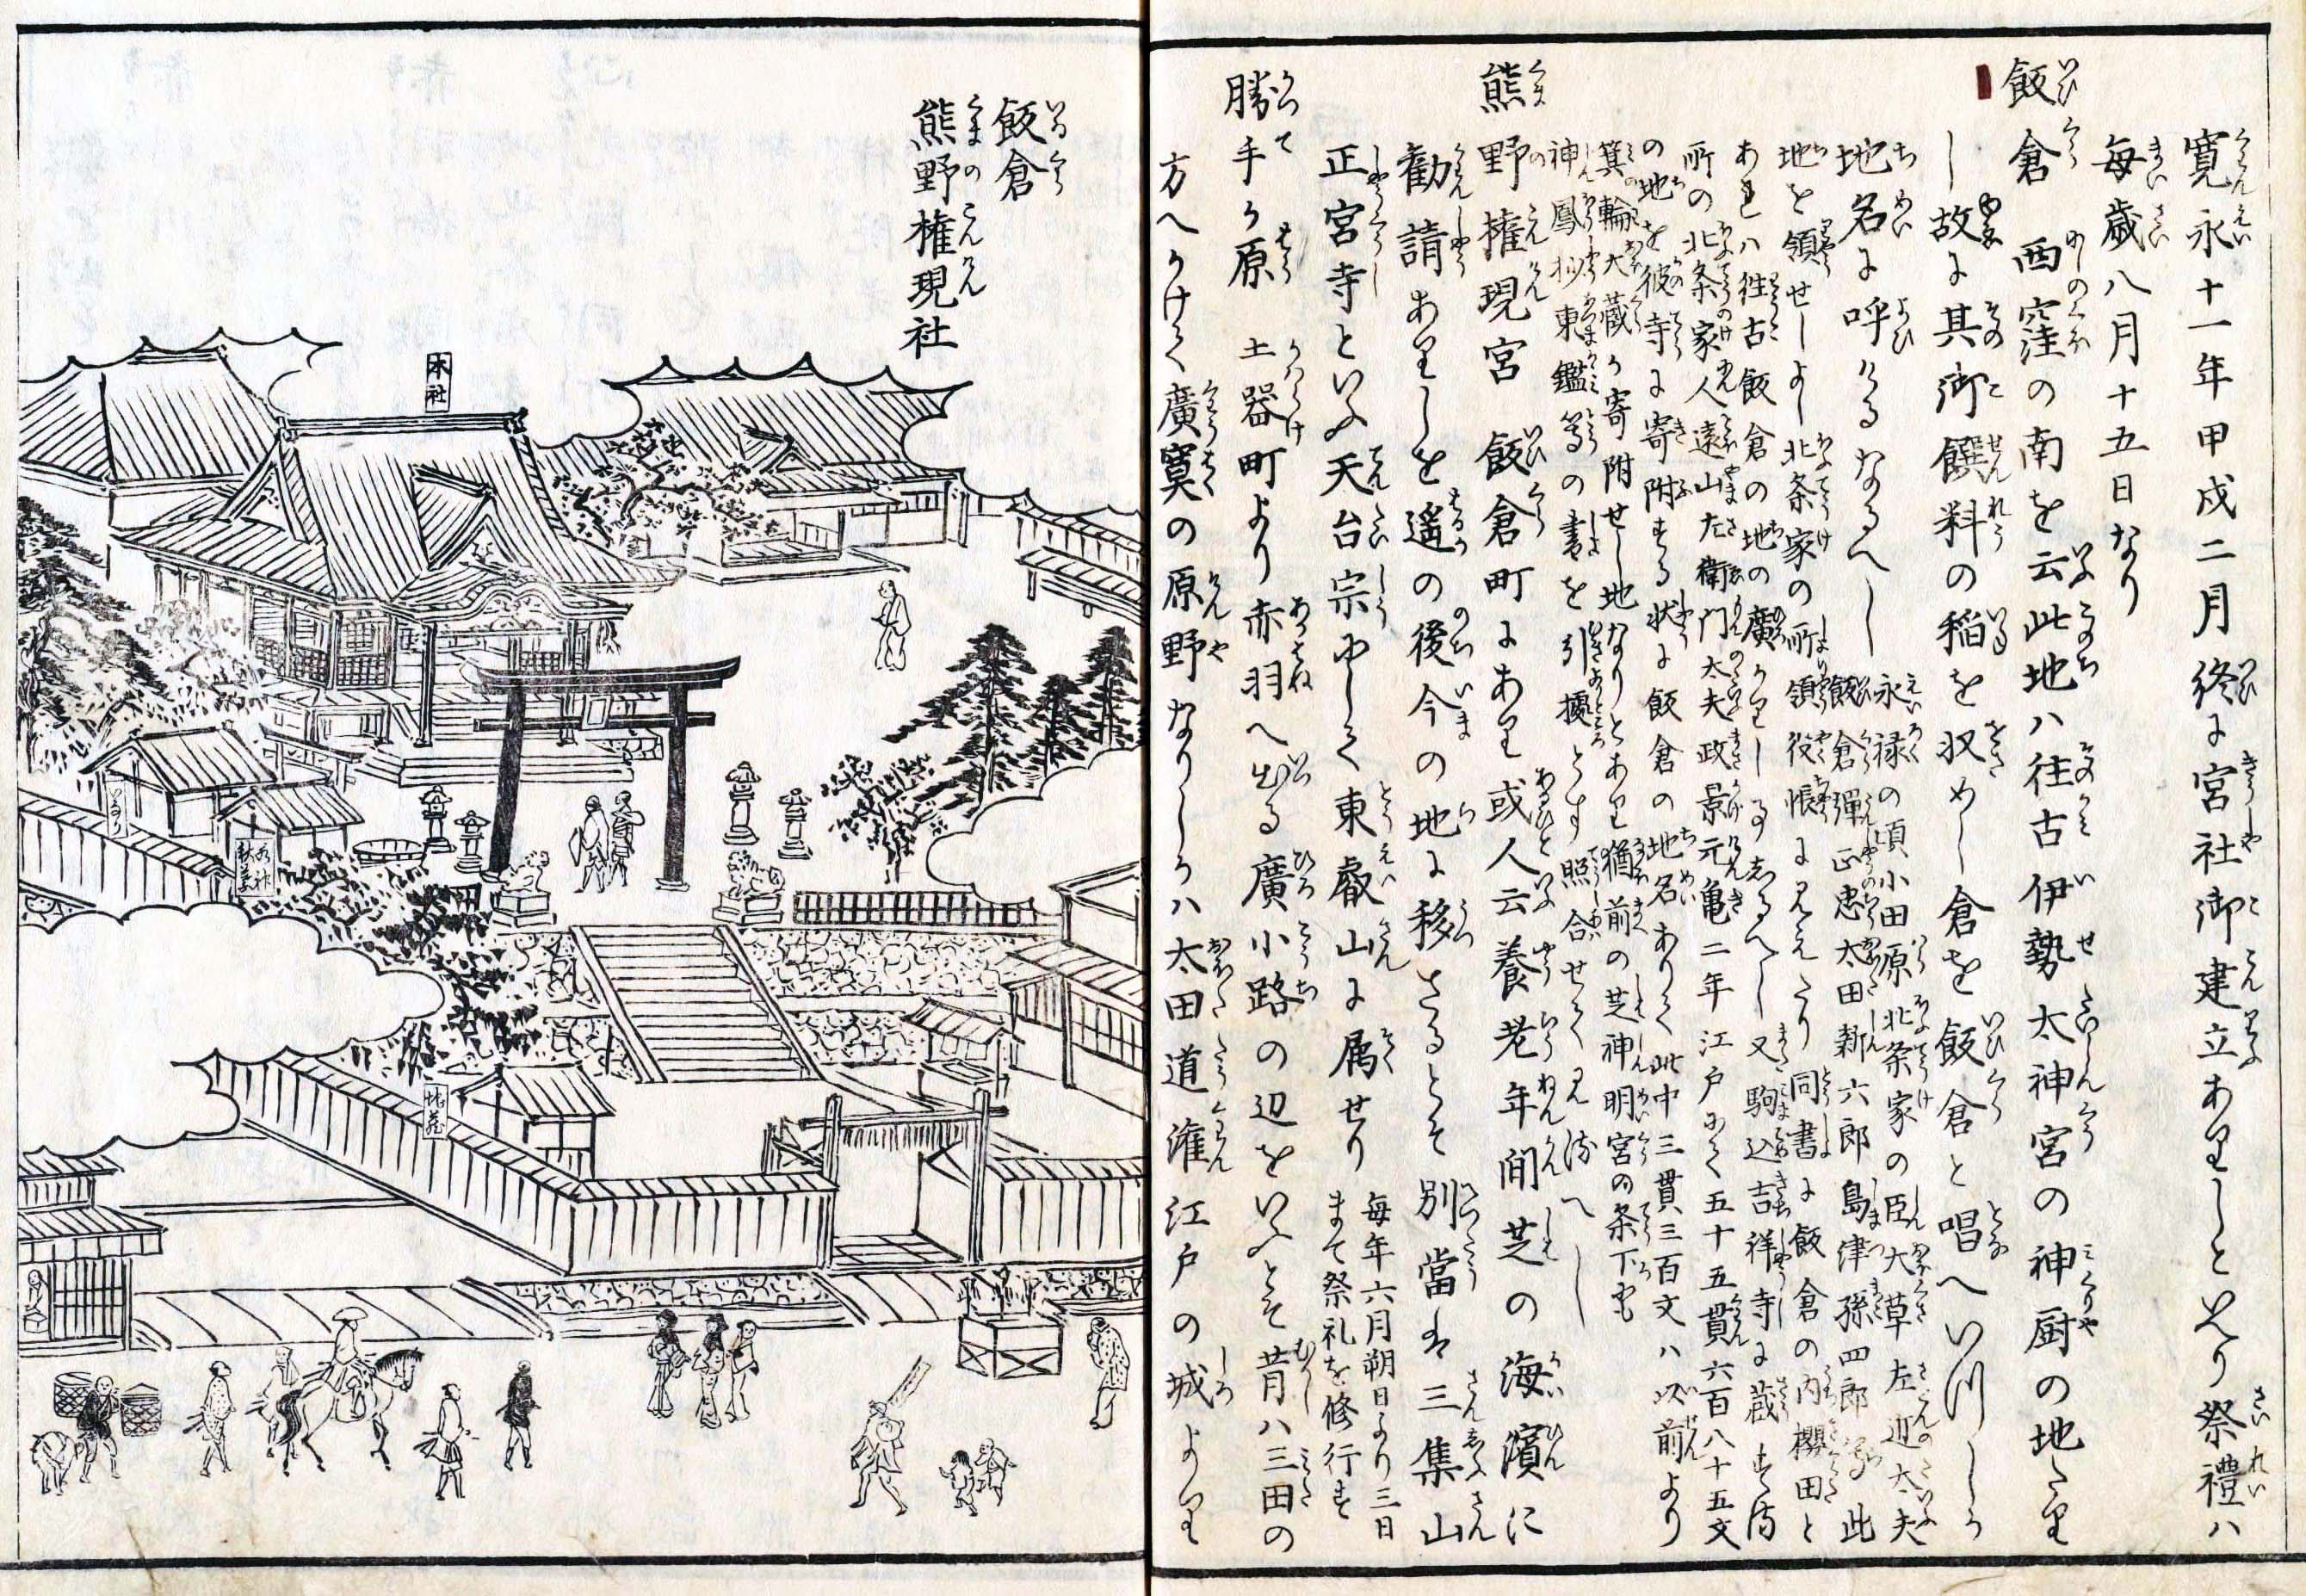 寛永十一年甲戌二月終に宮社御建立ありしといへり祭禮ハ
毎歳八月十五日なり
飯倉 西窪の南を云此地ハ往古伊勢太神宮の神厨の地たり
し故に其御饌料の稲を収めし倉を飯倉と唱へいつしか
地名に呼けるなるへし
永禄の頃小田原北条家の臣大草左近太夫
飯倉彈正忠太田新六郎島津孫四郎等此
地を領せしよし北条家の所領役帳に見えたり同書に飯倉の内櫻田と
あれハ往古飯倉の地の廣かりし事しるへし又駒込吉祥寺に蔵する
所の北条家人遠山左衛門太夫政景元亀二年江戸にて五十五貫六百八十五文
の地を彼寺に寄附する状に飯倉の地名ありて此中三貫三百文ハ以前より
箕輪大蔵か寄附せし地なりとあり猶前の芝神明宮の条下に
神鳳抄東鑑等の書を引據とす照合せて見るへし
熊野権現宮 飯倉町にあり或人云養老年間芝の海濱に
勧請ありしを遥の後今の地に移さるとそ別當は三集山
正宮寺といふ天台宗にして東叡山に属せり
毎年六月朔日より三日
まて祭礼を修行す
勝手ヶ原 土器町より赤羽へ出る廣小路の辺をいふとそ昔ハ三田の
方へかけて廣寞の原野なりしか太田道潅江戸の城より
飯倉
熊野権現社
本社
いなり
秋葉
地蔵